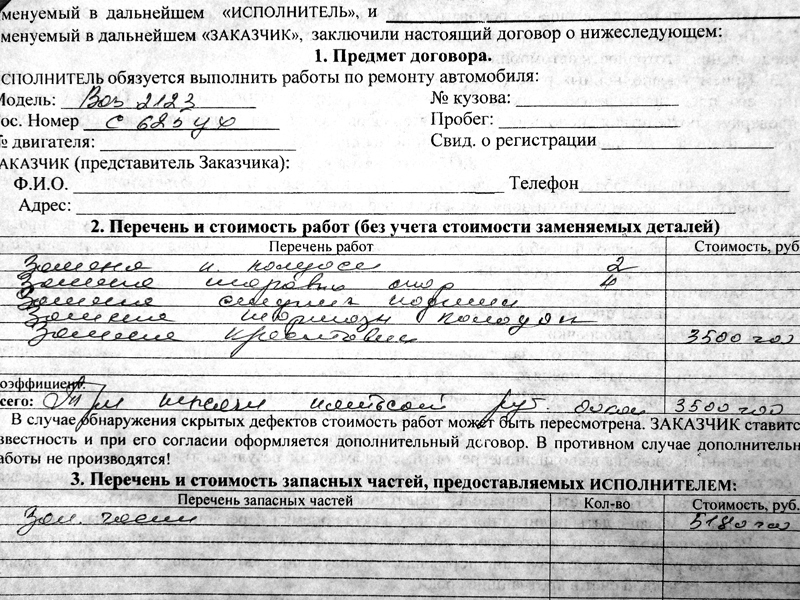 менуемый в дальнейшем «ИСПОЛНИТЕЛЬ», и
менуемый в дальнейшем «ЗАКАЗЧИК», заключили настоящий договор о нижеследующем:
1. Предмет договора.
СПОЛНИТЕЛЬ обязуется выполнить работы по ремонту автомобиля:
Модель: Ваз 2123 № кузова:
ос. Номер с 625 ух Пробег:
№ двигателя: Свид. о регистрации
АКАЗЧИК (представитель Заказчика):
Ф.И.О. Телефон
Адрес:
2. Перечень и стоимость работ (без учета стоимости заменяемых деталей)
Перечень работ Стоимость, руб
Замена п. полуоси 2
Замена шаровых опор 4
Замена ступиц подшип
Замена тормозн колодок
Замена крестовин 3500=00
оэффициент.
сего: Три тысячи пятьсот руб. 00коп 3500=00
В случае обнаружения скрытых дефектов стоимость работ может быть пересмотрена. ЗАКАЗЧИК ставится
звестность и при его согласии оформляется дополнительный договор. В противном случае дополнительн
аботы не производятся!
3. Перечень и стоимость запасных частей, предоставляемых ИСПОЛНИТЕЛЕМ:
Перечень запасных частей Кол-во Стоимость, руб.
Зап. части 5180=00